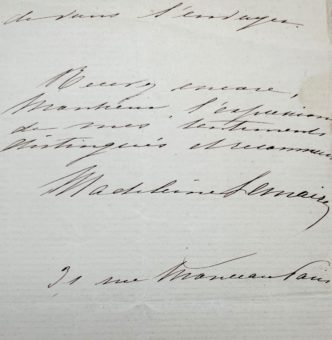 dans l'envoyer.
Recevez encore,
Monsieur, l'expression
de mes sentiments
distingués et reconnais
Madeleine Lemaire
31 rue Monceau Paris